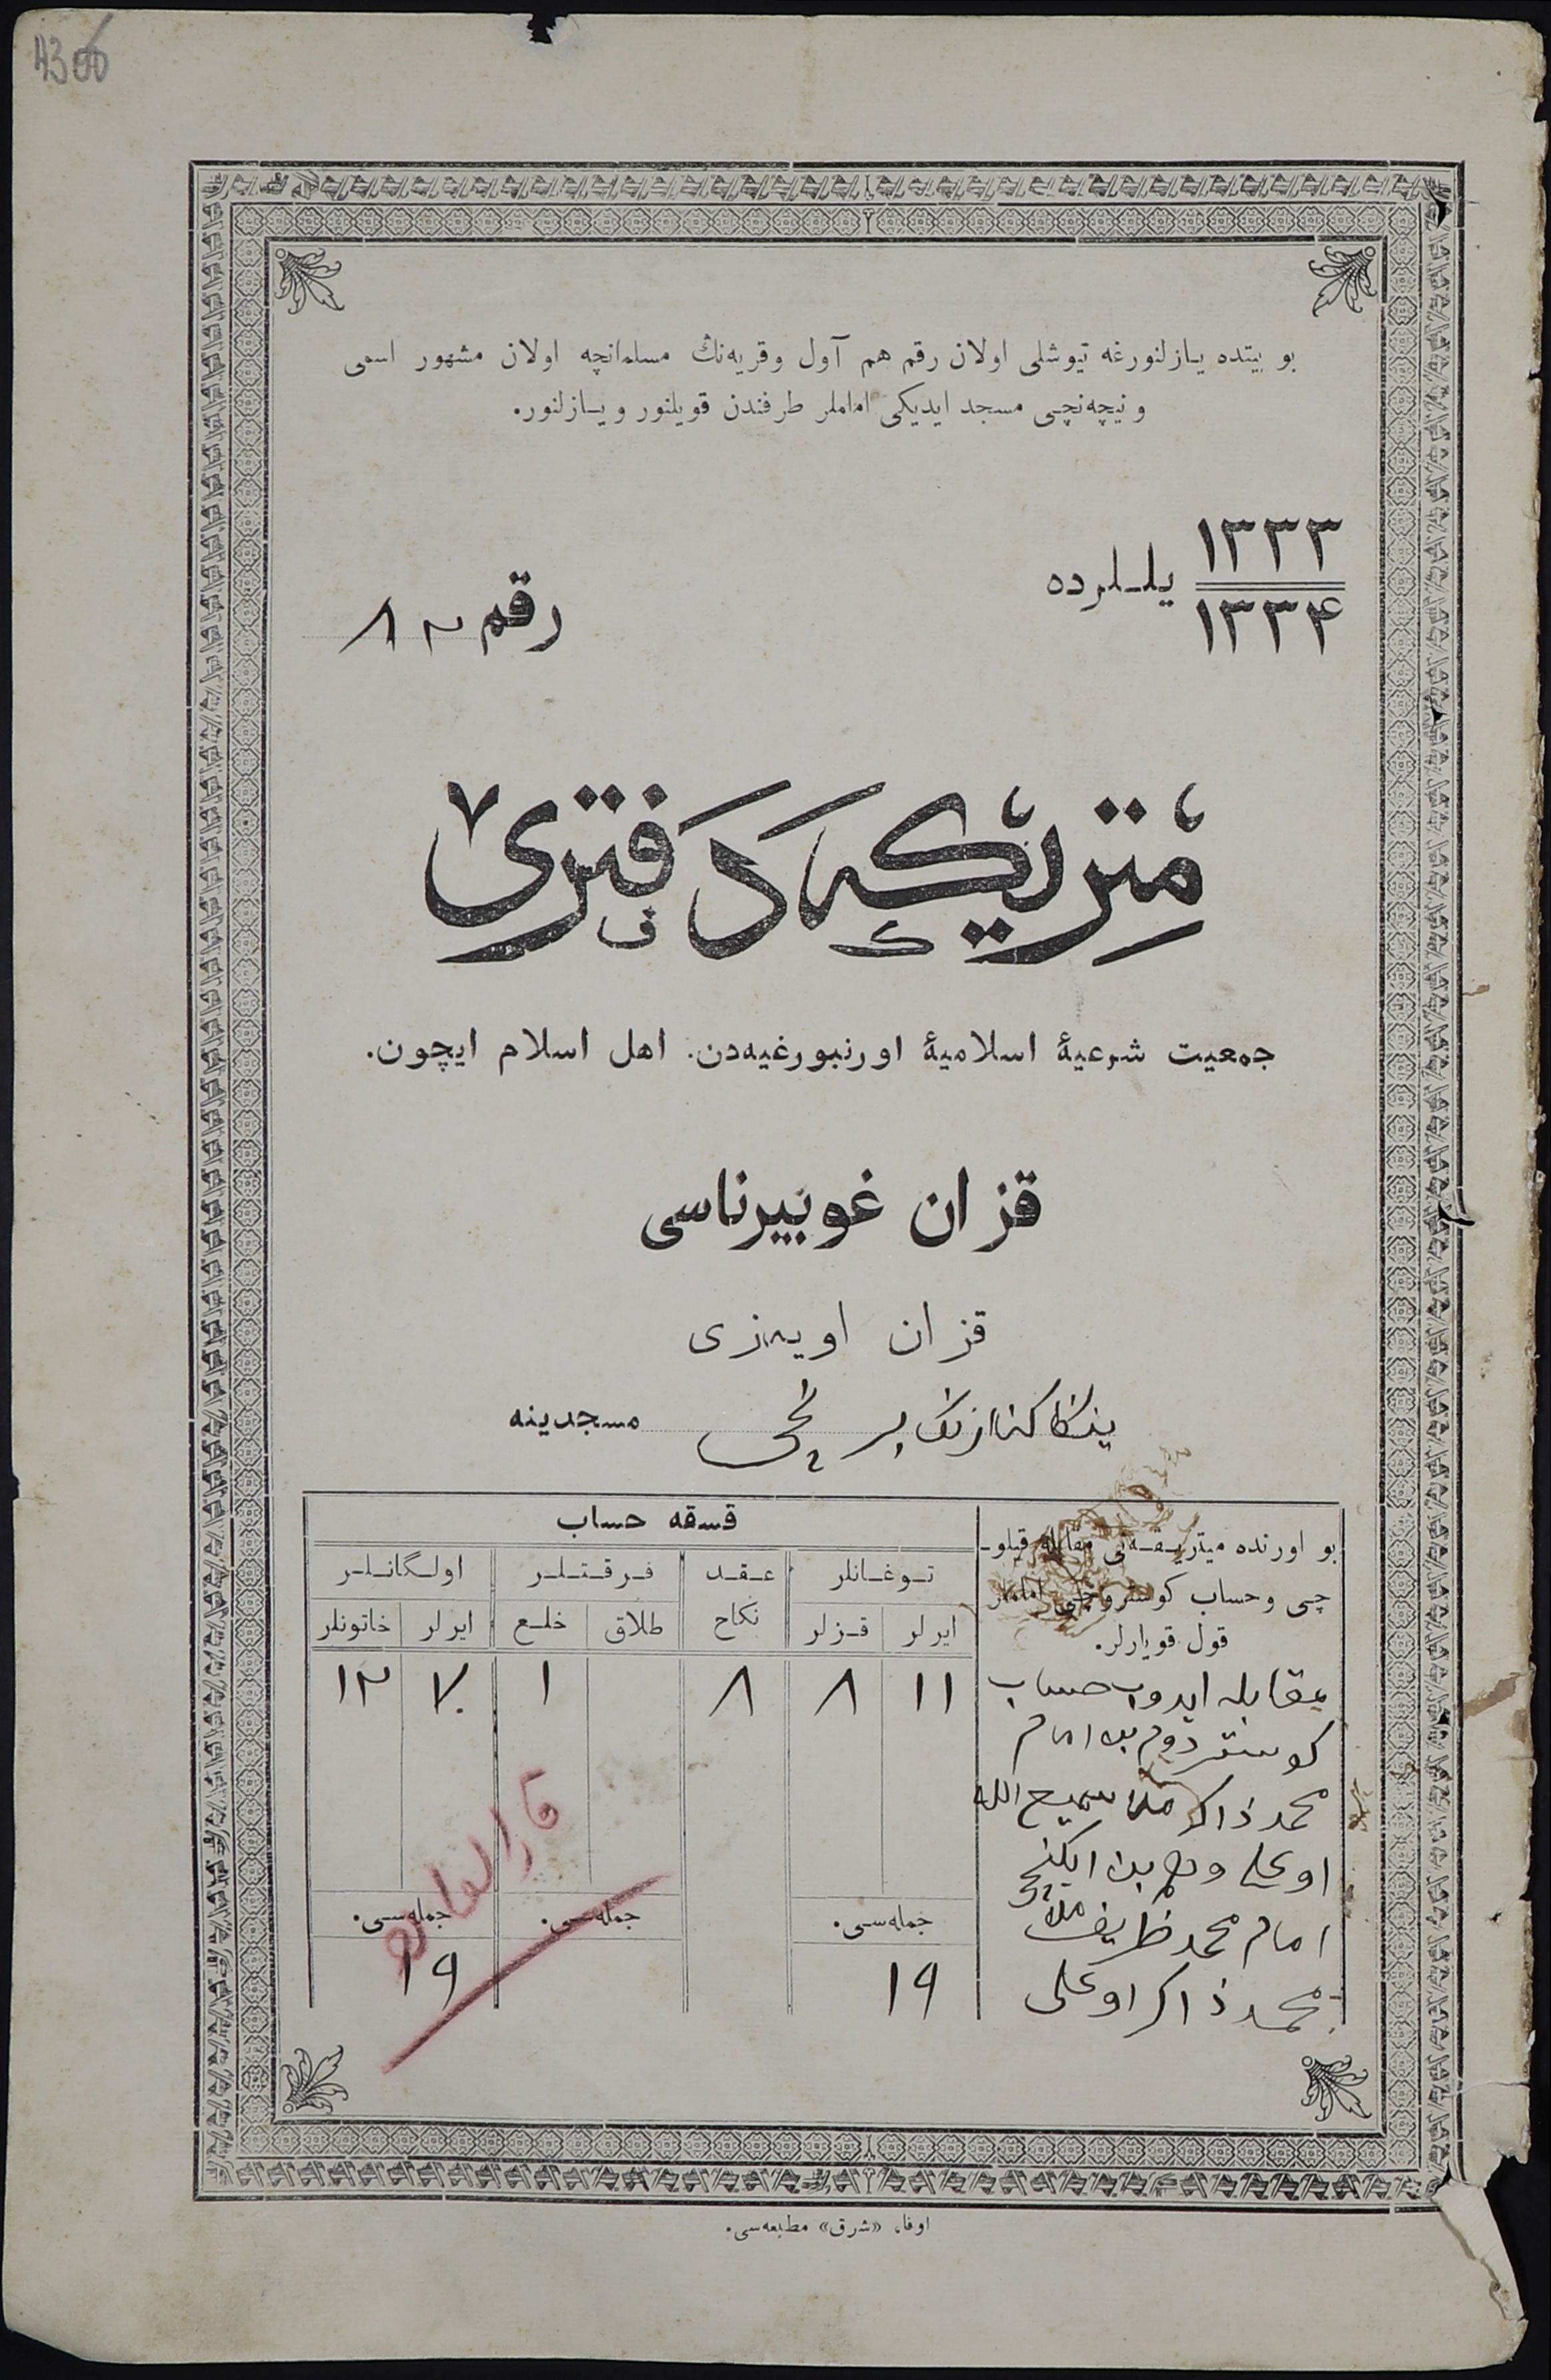 4306
بو بیتده یازلنورغه تیوشلی اولان رقم هم آول وقریه‌نڭ مسلمانچه اولان مشهور اسمی
ونیچه‌نچی مسجد ایدیکی اماملر طرفندن قویلنور ویازلنور.
١٣٣٣
١٣٣۴
یللرده
رقم ٨٢
مِتریكه دَفتری
جمعیت شرعیهٔ اسلامیهٔ اورنبورغیه‌دن. اهل اسلام ایچون.
قزان غوبیرناسی
قزان اویه‌زی
مسجدینه
بو اورنده میتریقه‌نی مقابله قیلو-
چی وحساب كوستروچی اماملر
قول قویارلر.
قسقه حساب
توغانلر
عقد
نكاح
فرقتلر
اولگانلر
ایرلر قزلر طلاق خلع ایرلر خاتونلر
١١ ٨ ٨ ١ ٧ ١٢
مقابله ایدوب حساب
كوستردوم بن امام
محمد ذاكر ملا سمیع الله
اوغلی وهم بن ایکنچی
امام محمد ظریف ملا
محمد ذاكر اوغلی
جمله‌سی. جمله‌سی. جمله‌سی.
١٩ ١٩
اوفا، «شرق» مطبعه‌سی.